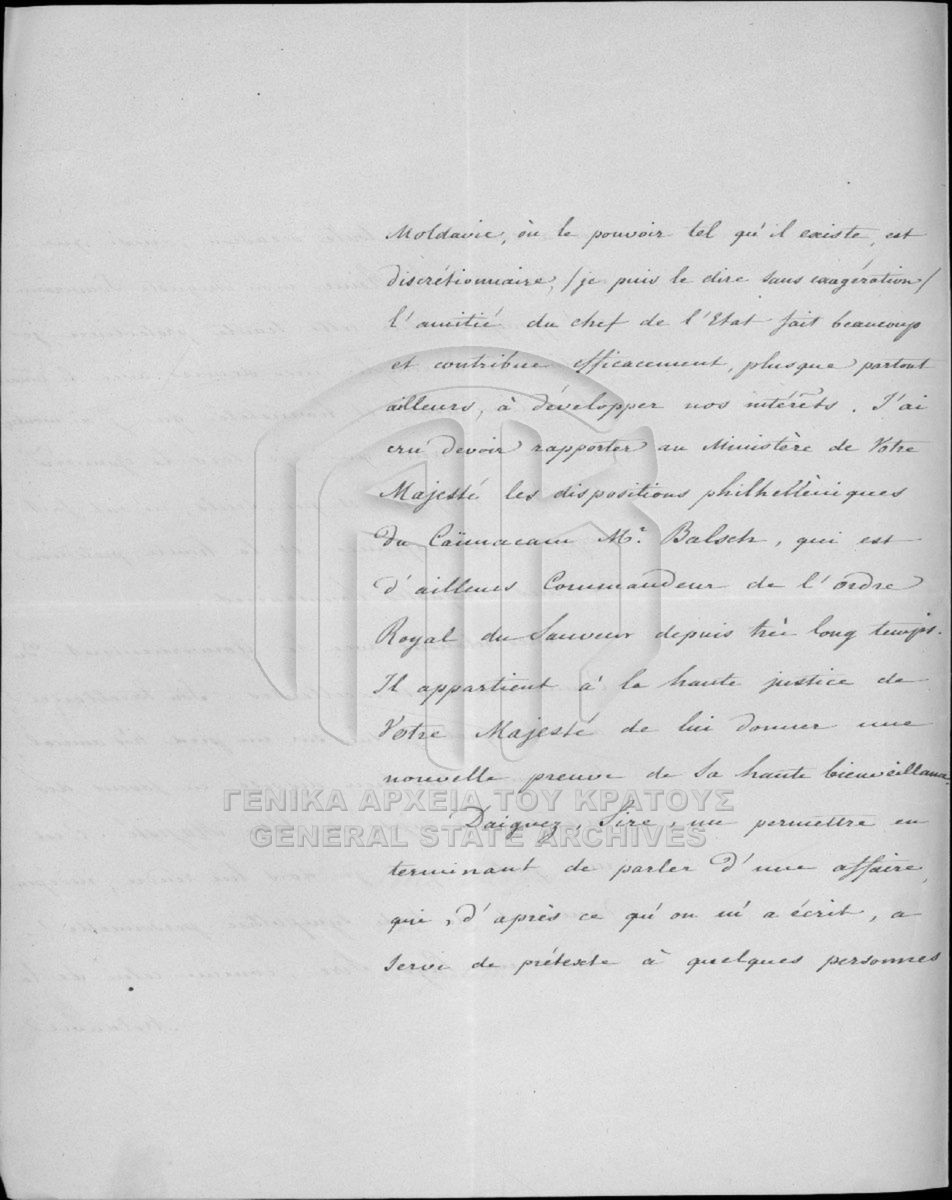 Moldavie, où le pouvoir tel qu'il existe, est
discrétionnaire, /je puis le dire sans exagération/
l'amitié du chef de l'Etat fait beaucoup
et contribue efficacement, plusque partout
ailleurs, à développer nos intérêts. J'ai
cru devoir rapporter au Ministère de Votre
Majesté les dispositions philhelléniques
du Caïmacam Mr. Balsch, qui est
d'ailleurs Commandeur de l'ordre
Royal du Sauveur depuis très long temps.
Il appartient à la haute justice de
Votre Majesté de lui donner une
nouvelle preuve de Sa haute bienveillance.
ΓΕΝΙΚΑ ΑΡΧΕΙΑ ΤΟΥ ΚΡΑΤΟΥΣ
GENERAL STATE ARCHIVES
Daignez, Sire, me permettre en
terminant de parler d'une affaire,
qui, d'après ce qu'on m'a écrit, a
servi de prétexte à quelques personnes